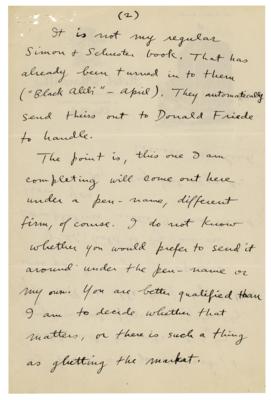 (2)
It is not my regular
Simon + Schuster book. That has
already been turned in to them
("Black Alibi" – April). They automatically
send theirs out to Donald Friede
to handle.
The point is, this one I am
completing will come out here
under a pen-name, different
firm, of course. I do not know
whether you would prefer to send it
around under the pen-name or
my own. You are better qualified than
I am to decide whether that
matters, or there is such a thing
as glutting the market.